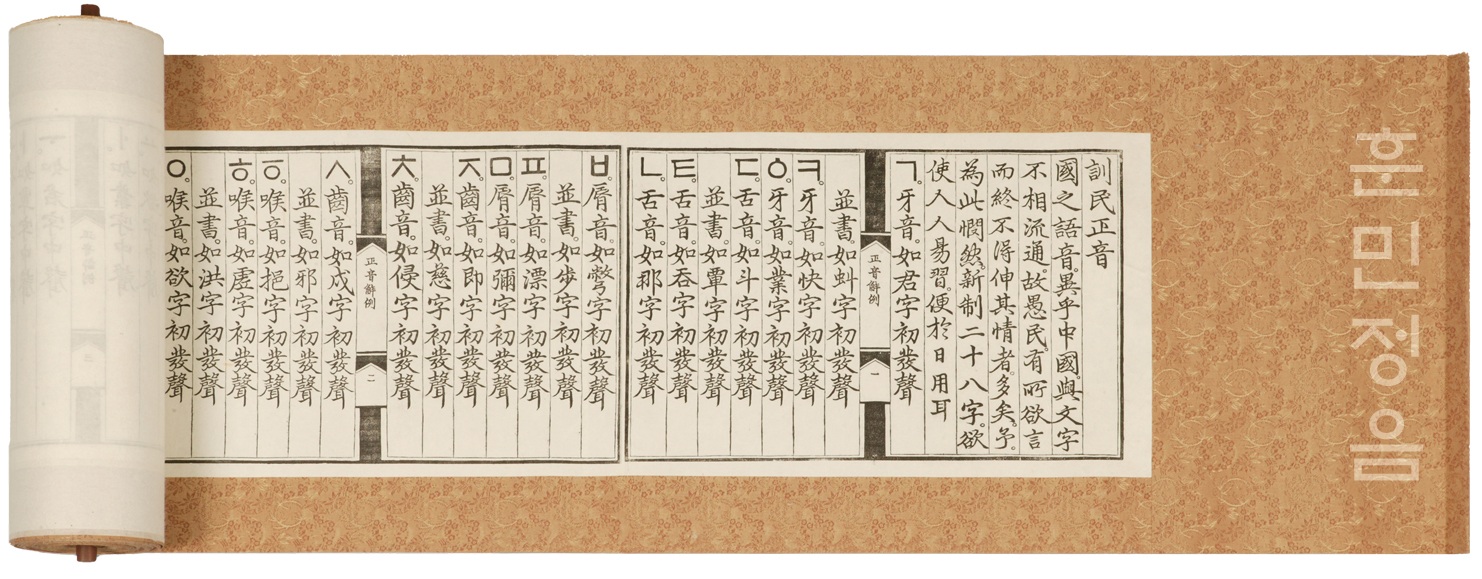 훈민정음
訓民正音
國之語音。異乎中國。與文字
不相流通。故愚民。有所欲言
而終不得伸其情者。多矣。予。
為此憫然。新制二十八字。欲
使人人易習。便於日用耳
ㄱ。牙音。如君字初發聲
正音解例 一
並書。如虯字初發聲
ㅋ。牙音。如快字初發聲
ㆁ。牙音。如業字初發聲
ㄷ。舌音。如斗字初發聲
並書。如覃字初發聲
ㅌ。舌音。如呑字初發聲
ㄴ。舌音。如那字初發聲
ㅂ。脣音。如彆字初發聲
並書。如步字初發聲
ㅍ。脣音。如漂字初發聲
ㅁ。脣音。如彌字初發聲
ㅈ。齒音。如即字初發聲
並書。如慈字初發聲
ㅊ。齒音。如侵字初發聲
正音解例 二
ㅅ。齒音。如戌字初發聲
並書。如邪字初發聲
ㆆ。喉音。如挹字初發聲
ㅎ。喉音。如虛字初發聲
並書。如洪字初發聲
ㅇ。喉音。如欲字初發聲